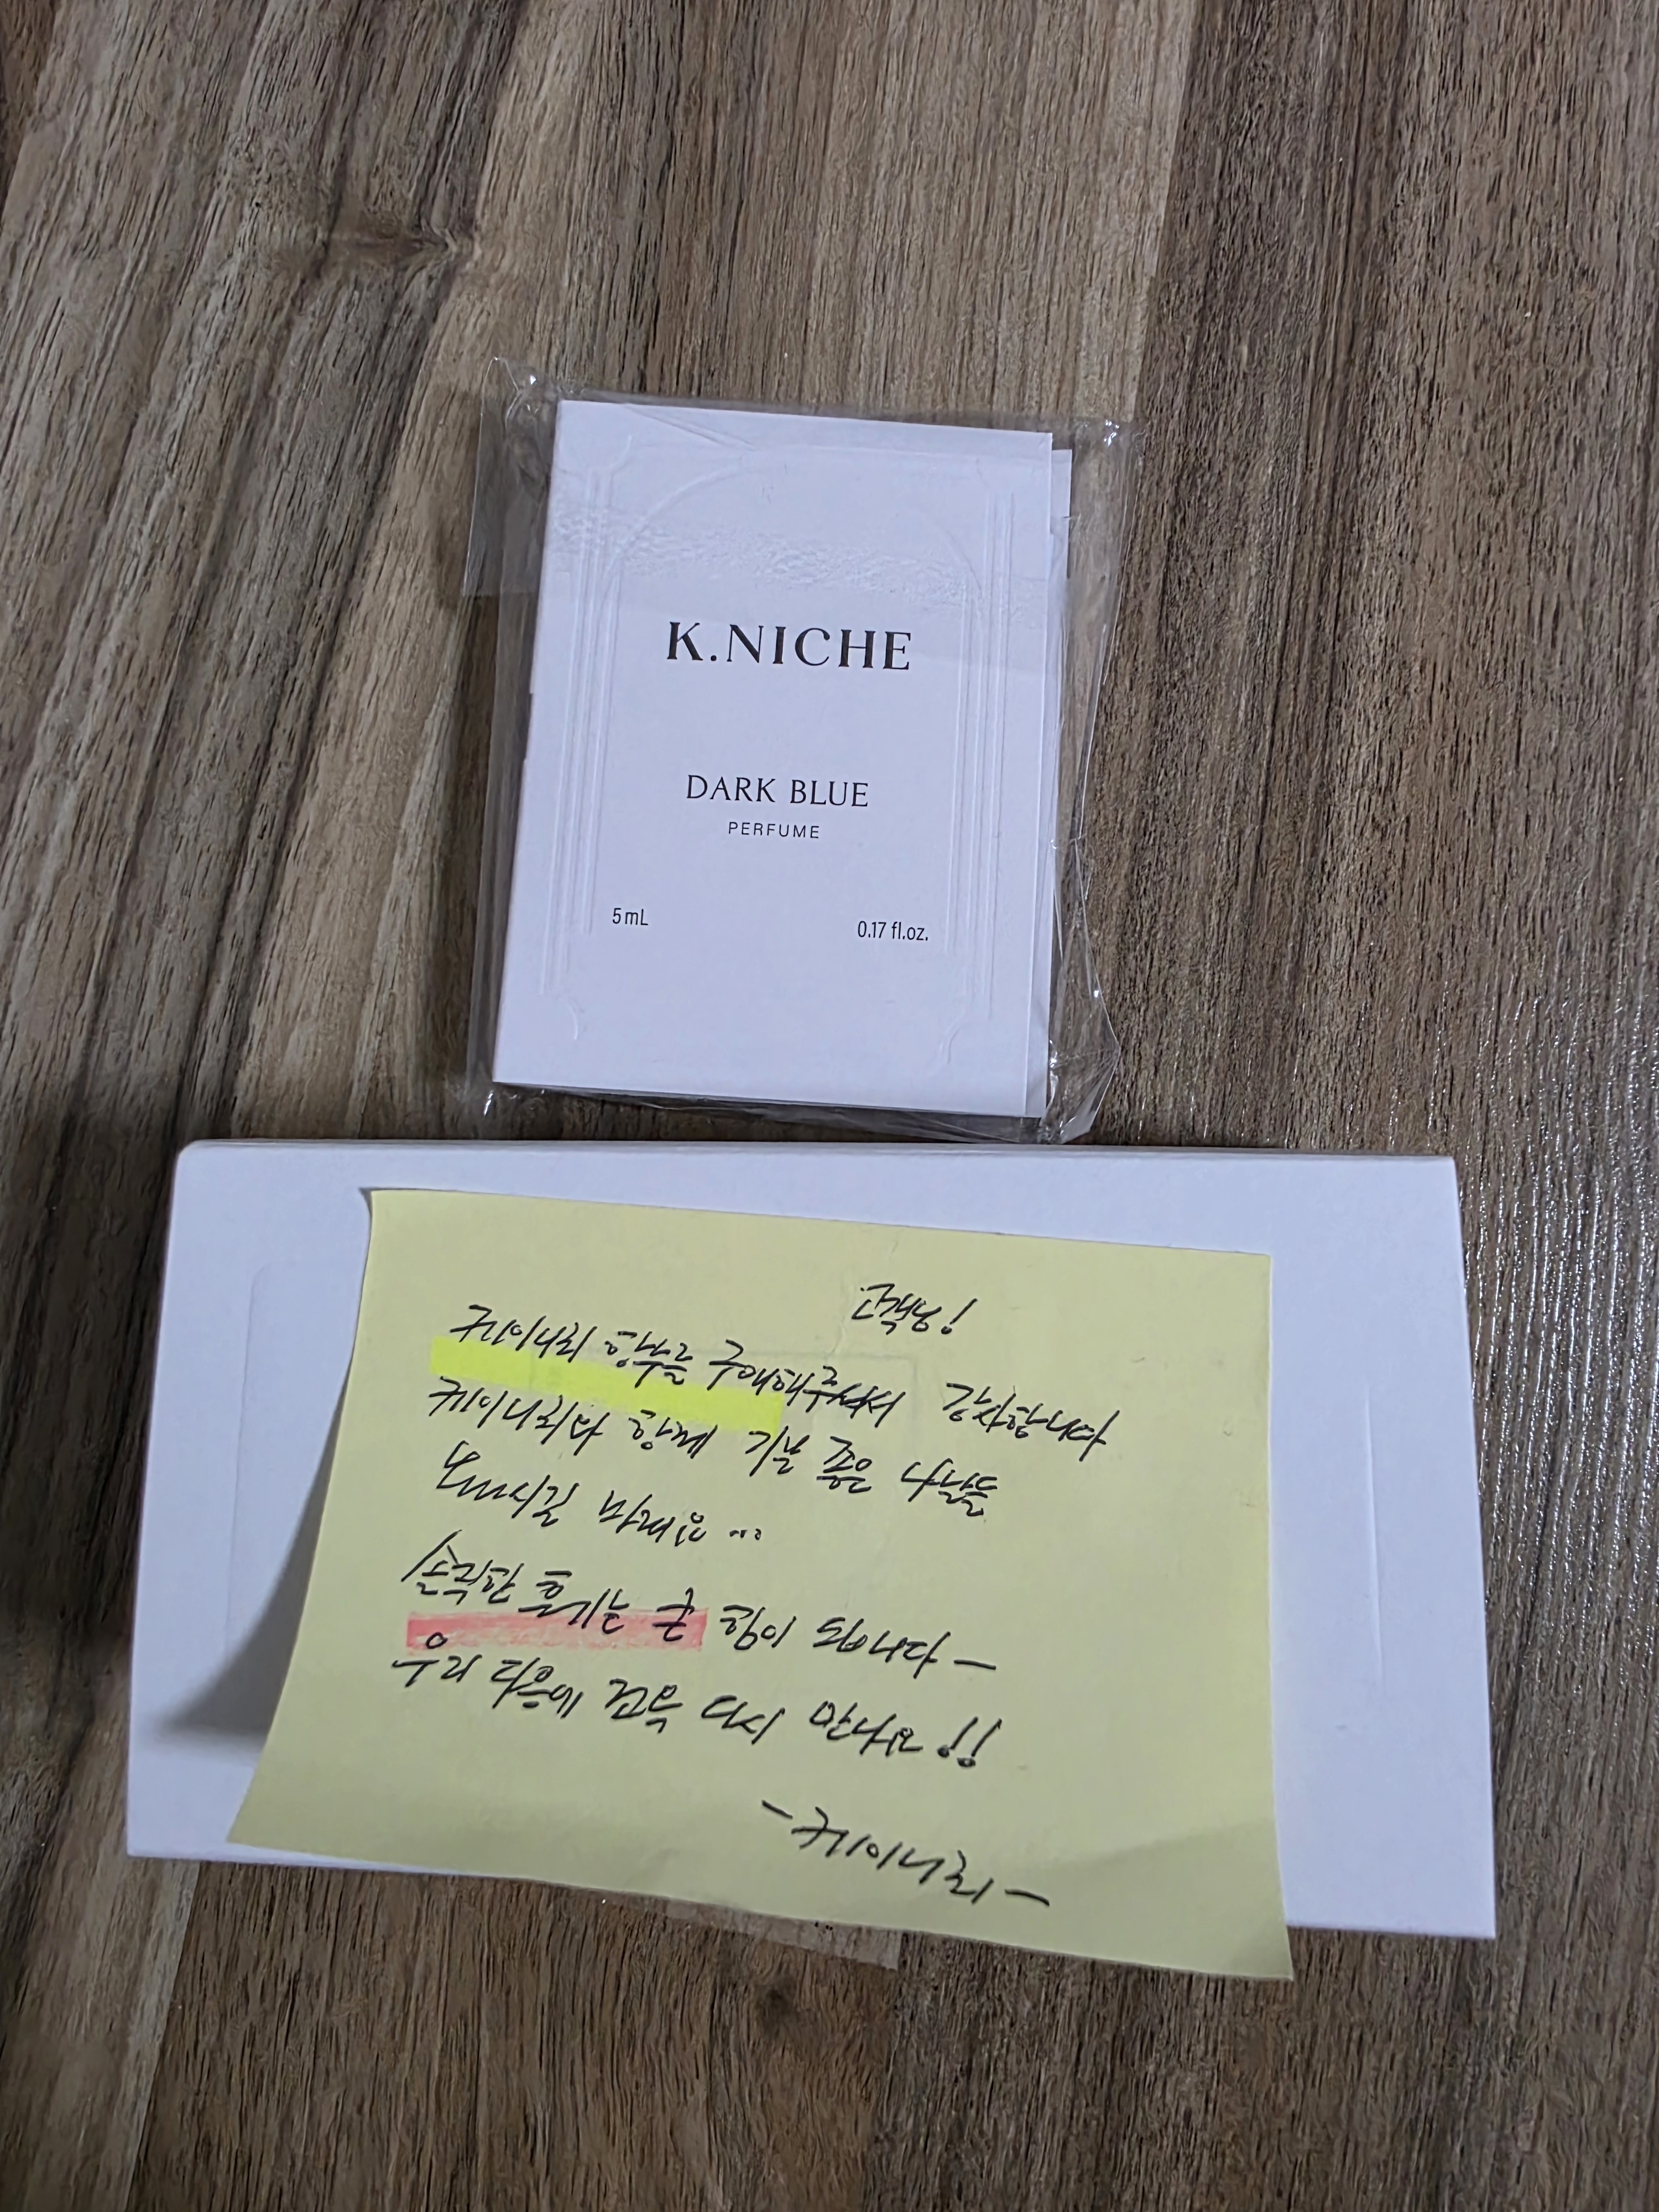 K.NICHE
DARK BLUE
PERFUME
5 mL 0.17 fl.oz.
고객님!
케이니치 향수를 구매해주셔서 감사합니다
케이니치와 함께 기분 좋은 나날들
보내시길 바래요...
솔직한 후기는 큰 힘이 됩니다 -
우리 다음에 꼭 다시 만나요!!
- 케이니치 -